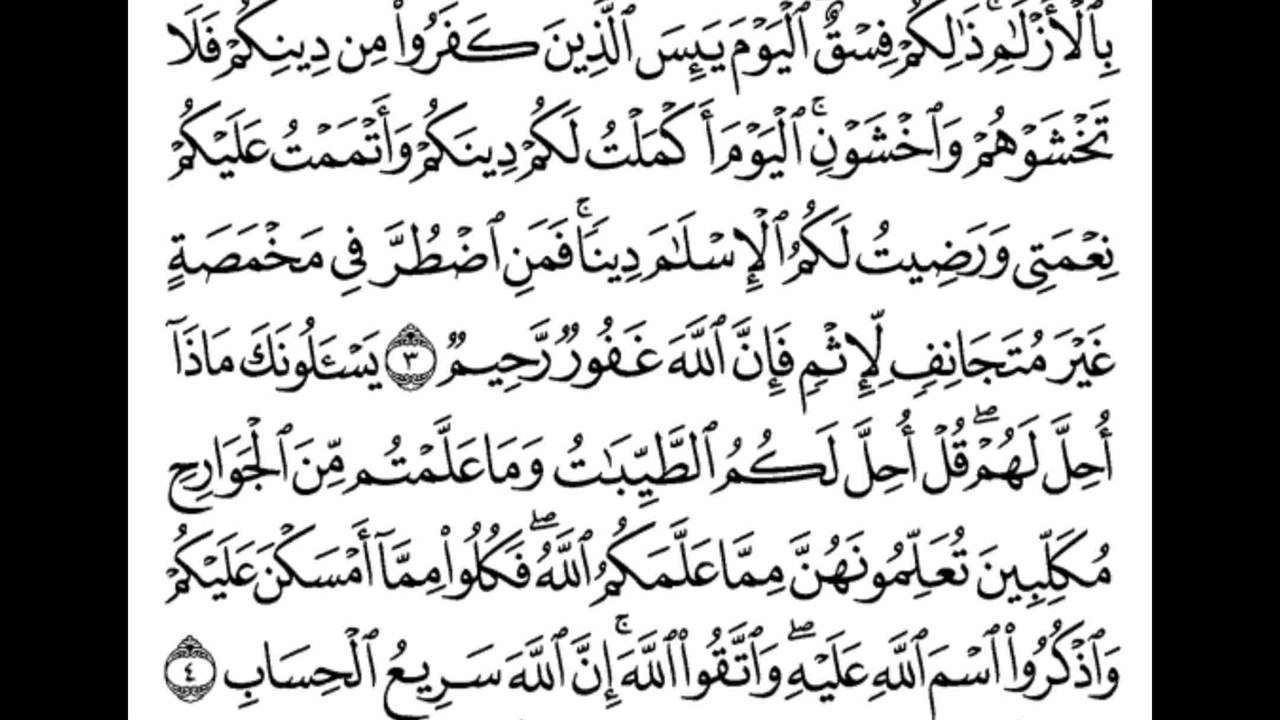 بِٱلْأَزْلَٰمِ ۚ ذَٰلِكُمْ فِسْقٌ ۗ ٱلْيَوْمَ يَئِسَ ٱلَّذِينَ كَفَرُوا۟ مِن دِينِكُمْ فَلَا
تَخْشَوْهُمْ وَٱخْشَوْنِ ۚ ٱلْيَوْمَ أَكْمَلْتُ لَكُمْ دِينَكُمْ وَأَتْمَمْتُ عَلَيْكُمْ
نِعْمَتِى وَرَضِيتُ لَكُمُ ٱلْإِسْلَٰمَ دِينًا ۚ فَمَنِ ٱضْطُرَّ فِى مَخْمَصَةٍ
غَيْرَ مُتَجَانِفٍ لِّإِثْمٍ فَإِنَّ ٱللَّهَ غَفُورٌ رَّحِيمٌ ٣ يَسْـَٔلُونَكَ مَاذَآ
أُحِلَّ لَهُمْ ۖ قُلْ أُحِلَّ لَكُمُ ٱلطَّيِّبَٰتُ وَمَا عَلَّمْتُم مِّنَ ٱلْجَوَارِحِ
مُكَلِّبِينَ تُعَلِّمُونَهُنَّ مِمَّا عَلَّمَكُمُ ٱللَّهُ ۖ فَكُلُوا۟ مِمَّآ أَمْسَكْنَ عَلَيْكُمْ
وَٱذْكُرُوا۟ ٱسْمَ ٱللَّهِ عَلَيْهِ ۖ وَٱتَّقُوا۟ ٱللَّهَ ۚ إِنَّ ٱللَّهَ سَرِيعُ ٱلْحِسَابِ ٤